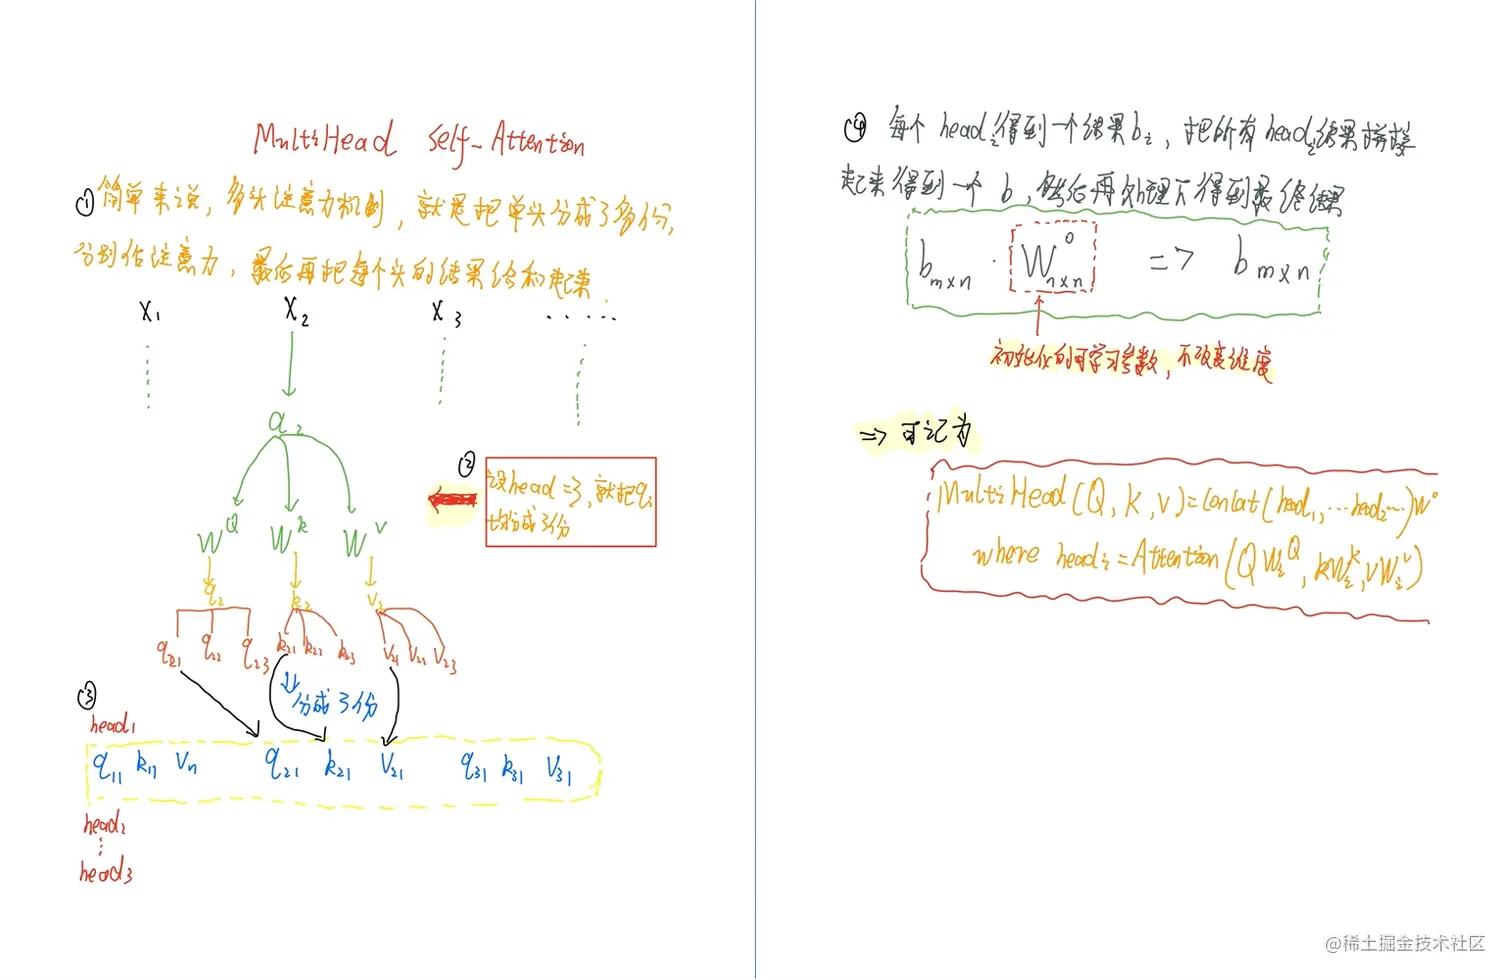 MultiHead self-Attention
① 简单来说，多头注意力机制，就是把单头分成了多份，
分别估注意力，最后再把每个头的结果给和起来.
X₁ X₂ X₃ ·····
a₂
② 设head=3，就把qᵢ
均分成3份
W^Q W^k W^v
q₂ k₂ v₂
q₂₁ q₂₂ q₂₃ k₂₁ k₂₂ k₂₃ v₂₁ v₂₂ v₂₃
⇓ 分成3份
③
head₁
q₁₁ k₁₁ v₁₁ q₂₁ k₂₁ v₂₁ q₃₁ k₃₁ v₃₁
head₂
⋮
head₃
④ 每个headᵢ得到一个结果bᵢ，把所有headᵢ结果拼接
起来得到一个b，然后再处理下得到最终结果
b_{m×n} · W^o_{n×n} => b_{m×n}
初始化的可学习参数，不改变维度
=> 可记为
MultiHead(Q, k, v)=Concat(head₁, ···head₂···)W^o
where headᵢ=Attention(QWᵢ^Q, kWᵢ^k, vWᵢ^v)
@稀土掘金技术社区